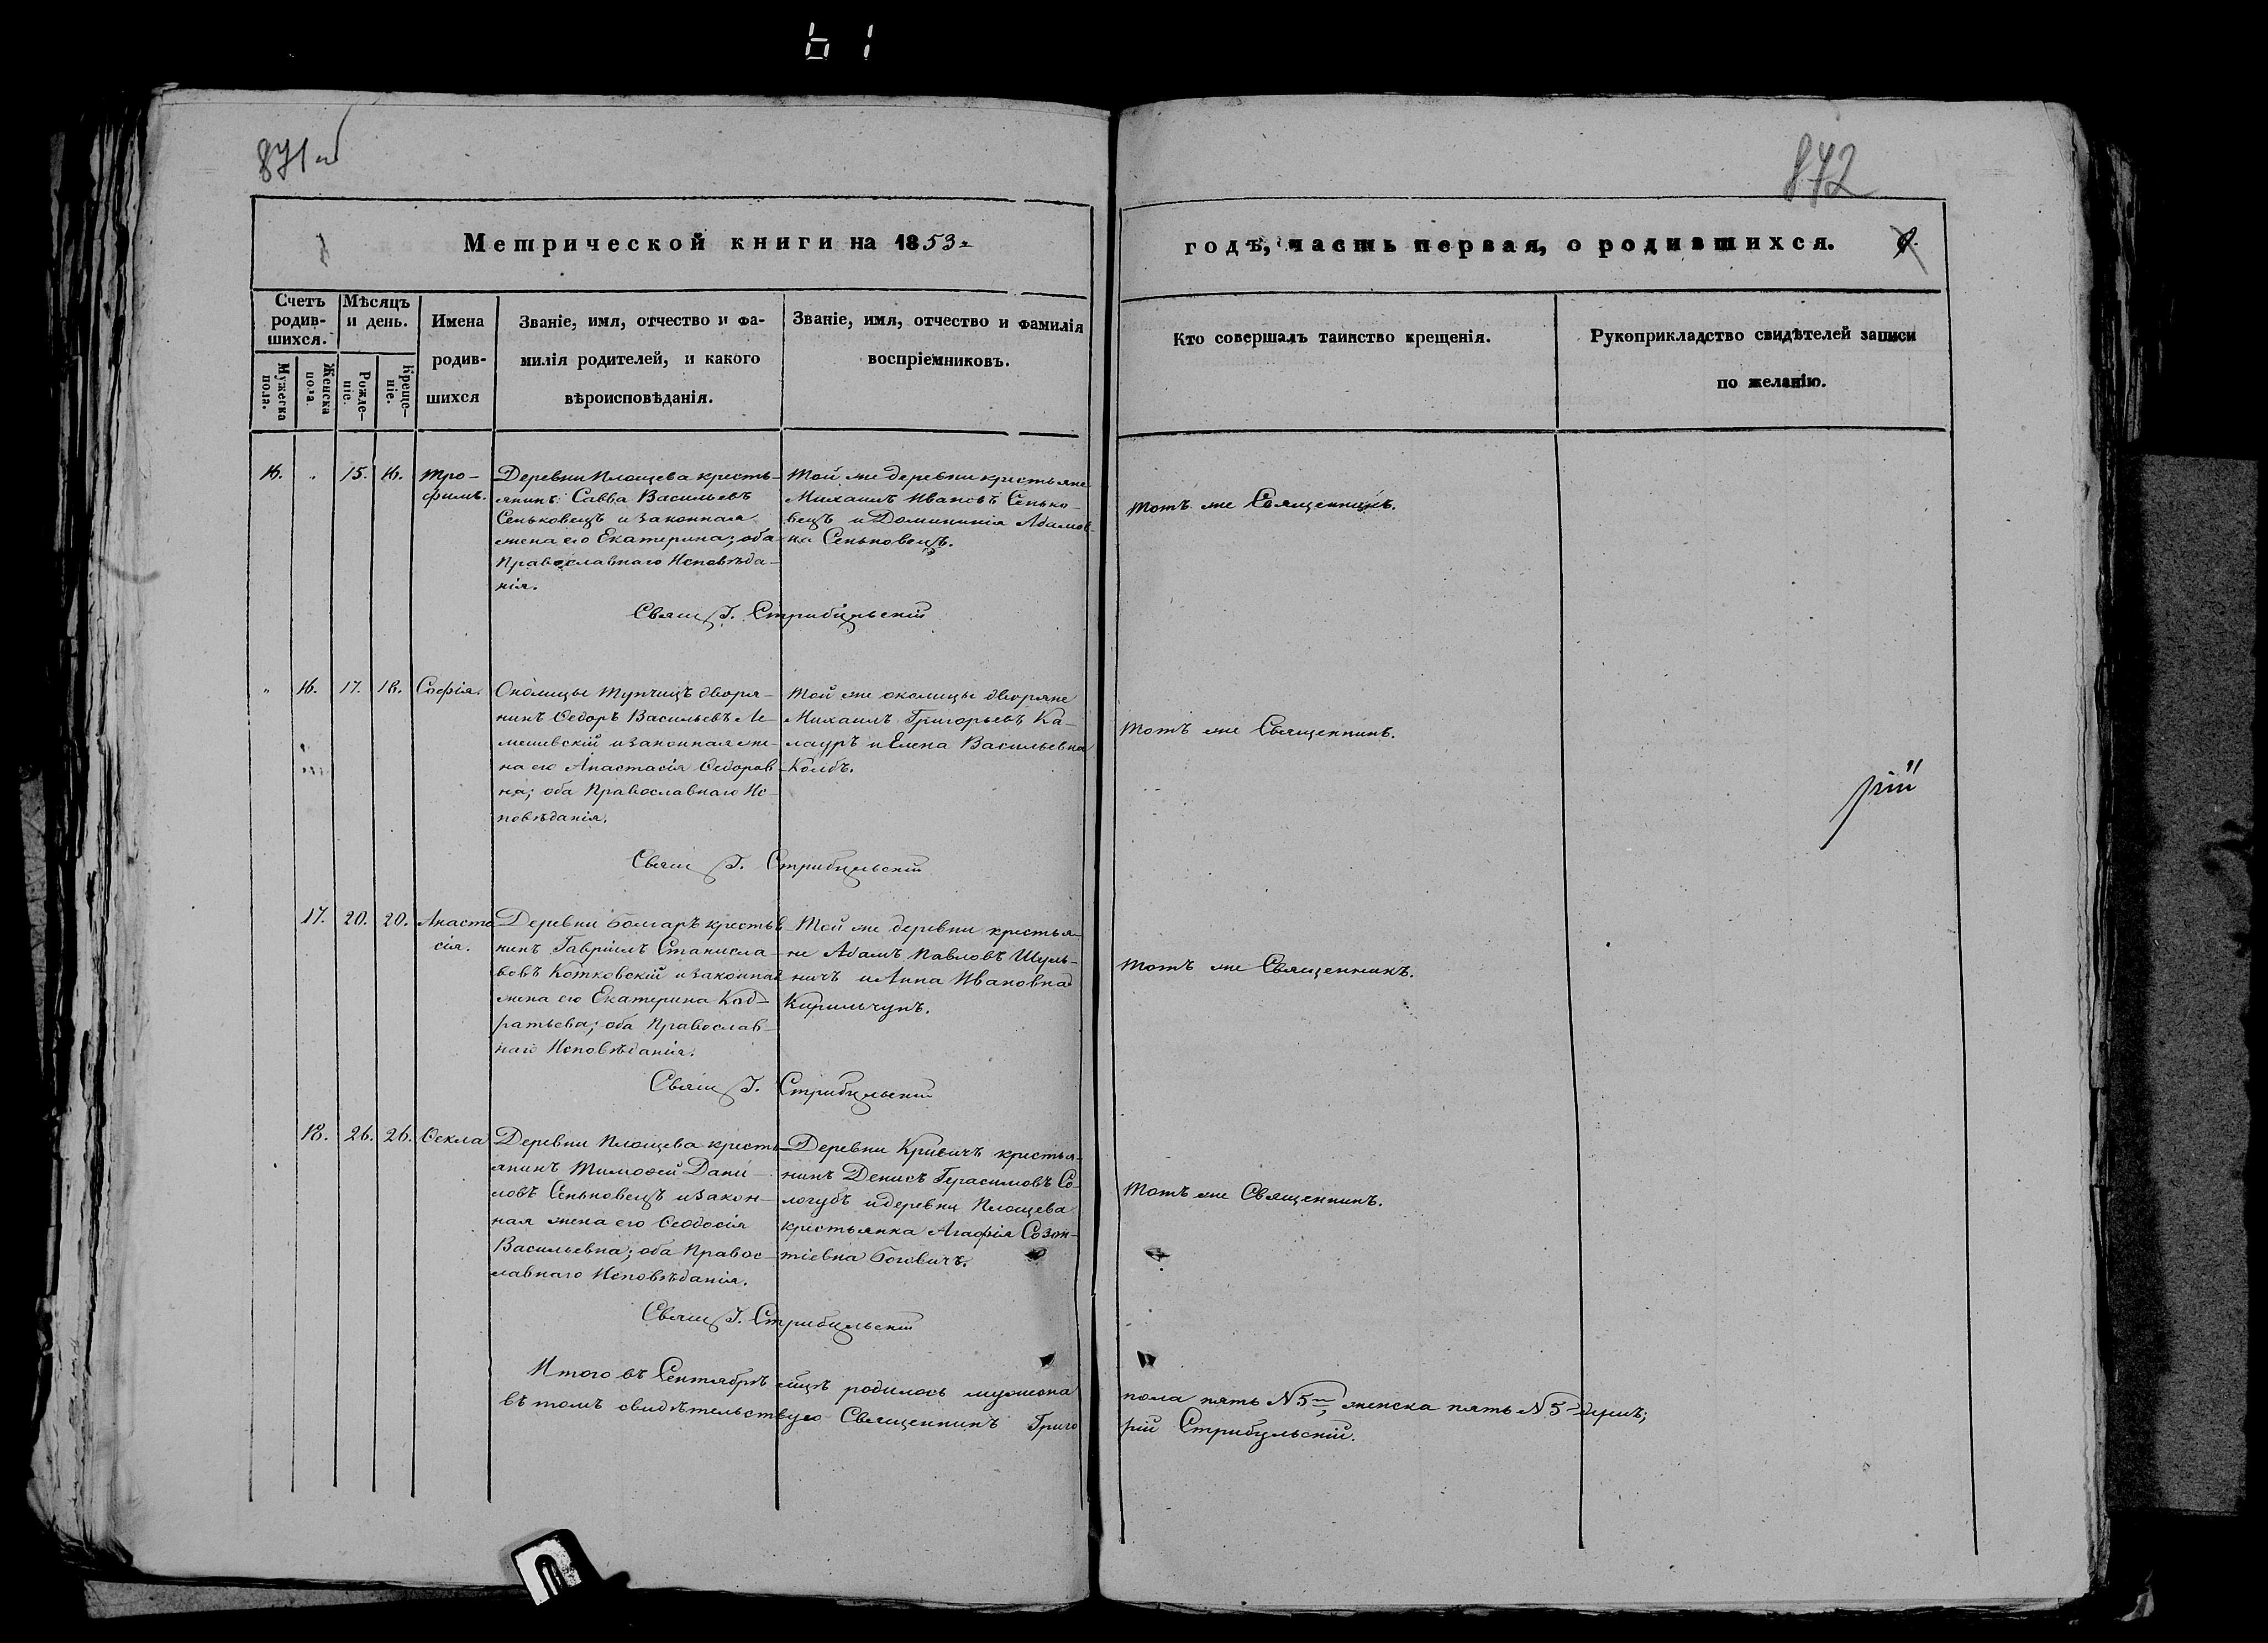 61
871 об
872
Метрической книги на 1853
годъ, часть первая, о родившихся.
Счетъ родив-шихся.
Мѣсяцъ и день.
Имена родив-шихся
Званіе, имя, отчество и фа-
милія родителей, и какого
вѣроисповѣданія.
Званіе, имя, отчество и фамилія
воспріемниковъ.
Кто совершалъ таинство крещенія.
Рукоприкладство свидѣтелей записи
по желанію.
Мужеска пола.
Женска пола.
Рожде-ніе.
Креще-ніе.
16. " 15. 16. Тро-
фимъ.
Деревни Площева кресть-
янинъ Савва Васильевъ
Сеньковецъ и законная
жена его Екатерина; оба
Православнаго Исповѣда-
нія.
Той же деревни крестьяне
Михаилъ Ивановъ Сенько-
вецъ и Доминикія Адамов-
на Сеньковецъ.
Тотъ же Священникъ.
Свящ. Г. Стрибульскій
" 16. 17. 18. Софія.
Околицы Тупчицъ дворя-
нинъ Ѳедоръ Васильевъ Ле-
мешевскій и законная же-
на его Анастасія Ѳедоров-
на; оба Православнаго Ис-
повѣданія.
Той же околицы дворяне
Михаилъ Григорьевъ Ка-
лауръ и Елена Васильевна
Колбъ.
Тотъ же Священникъ.
рій
Свящ. Г. Стрибульскій
17. 20. 20. Анаста
сія.
Деревни Болгаръ крестья
нинъ Гавріилъ Станисла-
вовъ Котковскій и законная
жена его Екатерина Код-
ратьева; оба Православ-
наго Исповѣданія.
Той же деревни крестья-
не Адамъ Павловъ Шуль-
ничъ и Анна Ивановна
Кирильчукъ.
Тотъ же Священникъ.
Свящ. Г. Стрибульскій
18. 26. 26. Ѳекла
Деревни Площева кресть-
янинъ Тимоѳей Дани-
ловъ Сеньковецъ и закон-
ная жена его Ѳеодосія
Васильевна; оба Правос-
лавнаго Исповѣданія.
Деревни Кривичъ крестья-
нинъ Денисъ Герасимовъ Со-
логубъ и деревни Площева
крестьянка Агафія Созон-
тіевна Боговичъ.
Тотъ же Священникъ.
Свящ. Г. Стрибульскій
Итого въ Сентябрѣ мцѣ родилось мужеска пола пять N 5 женска пять N 5 душъ;
въ томъ свидѣтельствую Священникъ Григо рій Стрибульскій.